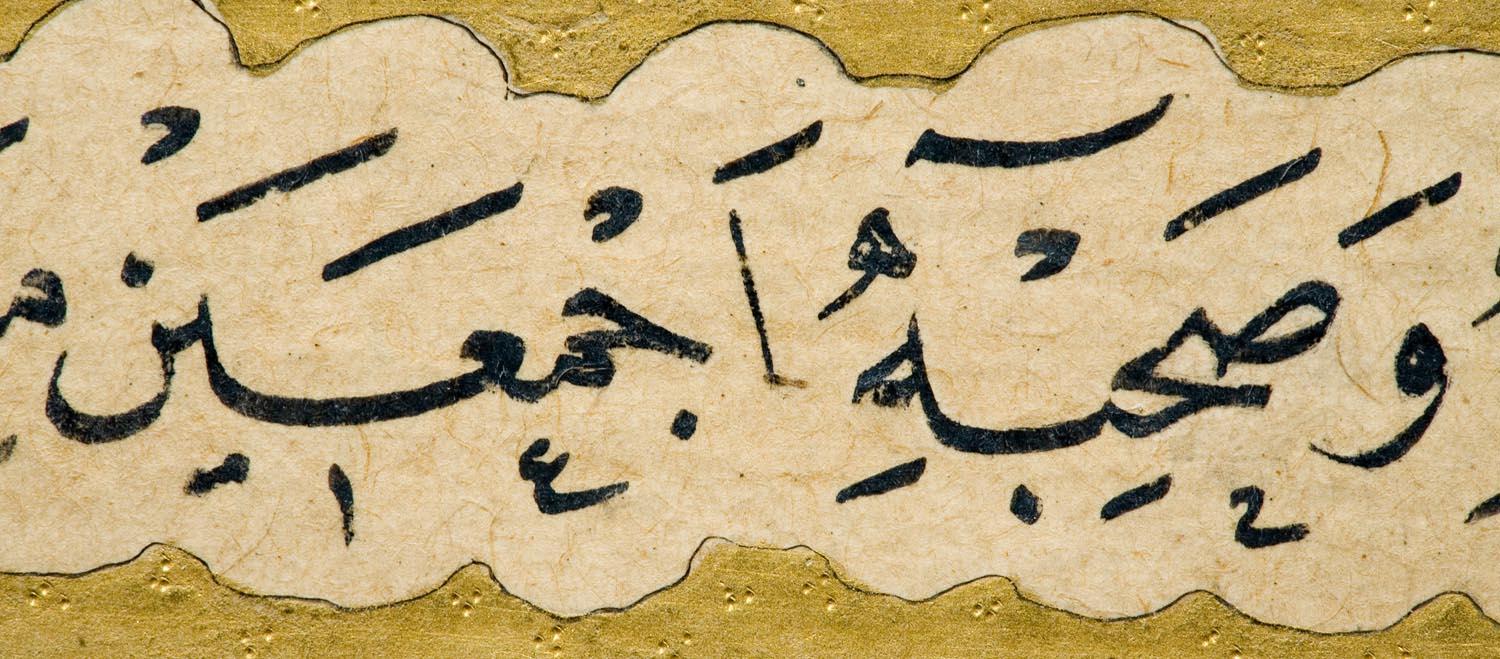 وَصَحْبِهِ اَجْمَعَين